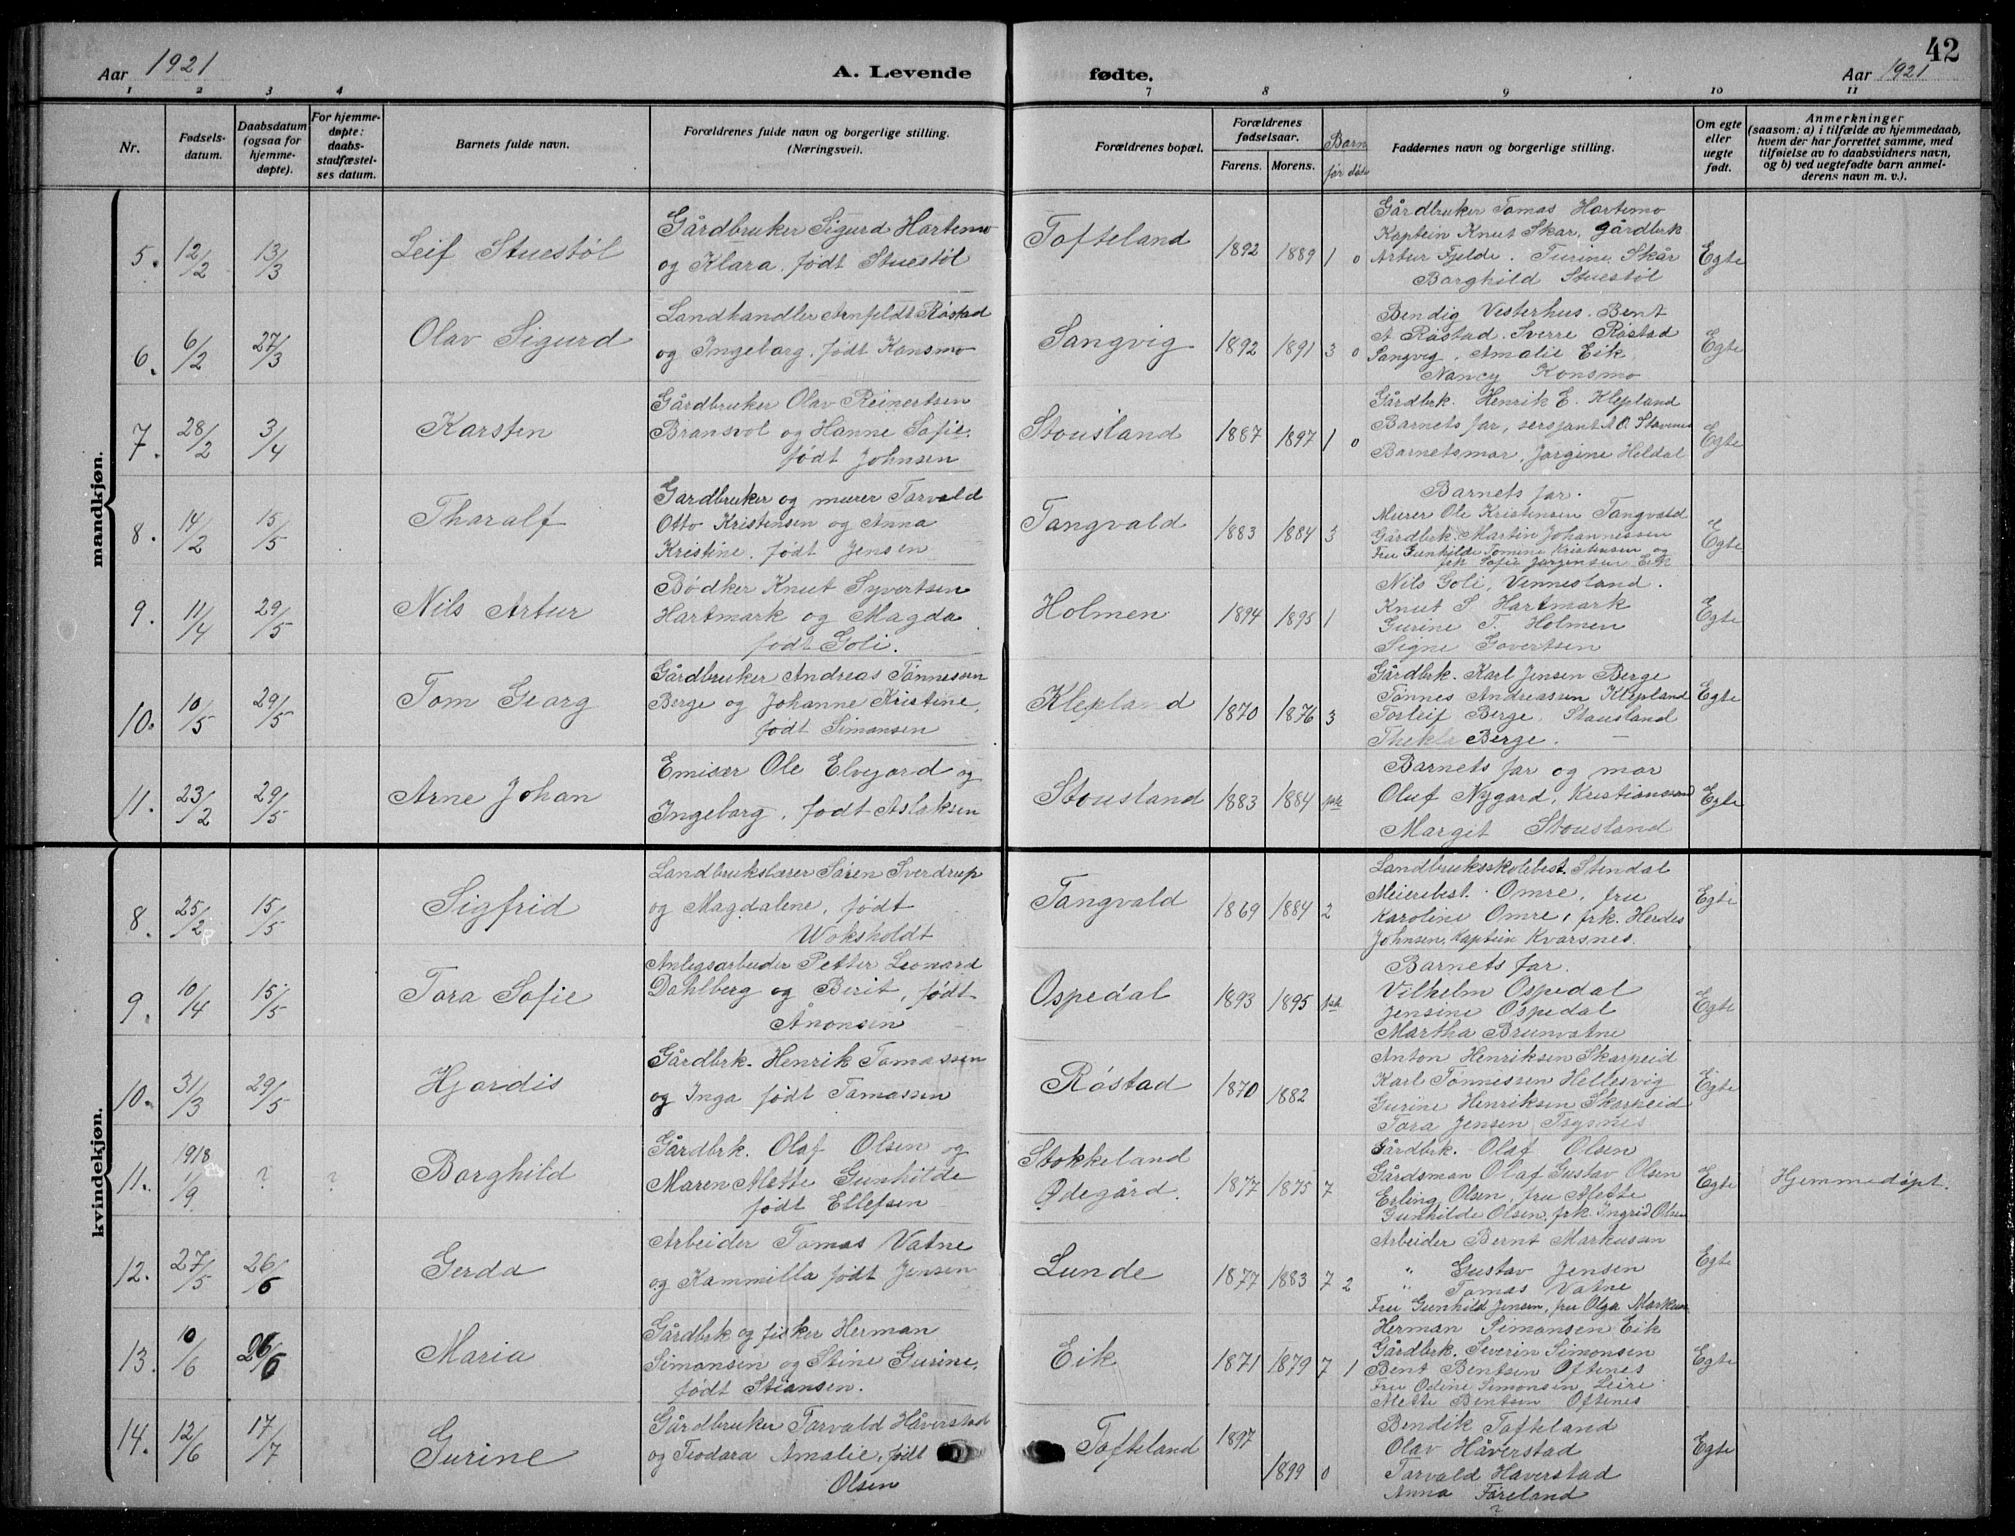 42
Aar 1921
A. Levende fødte.
Aar 1921
1 2 3 4 7 8 9 10 11
Nr.
Fødsels-
datum.
Daabsdatum
(ogsaa for
hjemme-
døpte).
For hjemme-
døpte:
daabs-
stadfæstel-
ses datum.
Barnets fulde navn.
Forældrenes fulde navn og borgerlige stilling.
(Næringsvei).
Forældrenes bopæl.
Forældrenes
fødselsaar.
Farens. Morens.
Barn
før døde
Faddernes navn og borgerlige stilling.
Om egte
eller
uegte
født.
Anmerkninger
(saasom: a) i tilfælde av hjemmedaab,
hvem der har forrettet samme, med
tilføielse av to daabsvidners navn,
og b) ved uegtefødte barn anmel-
derens navn m. v.).
mandkjøn.
5. 12/2 13/3 Leif Stuestøl
Gårdbruker Sigurd Hartemo
og Klara, født Stuestøl
Tofteland 1892 1889 1 0
Gårdbruker Tomas Hartemo
Kaptein Knut Skar, gårdbrk
Artur Fjelde. Turine Skår
Borghild Stuestøl
Egte
6. 6/2 27/3 Olav Sigurd
Landhandler Arnfeldt Røstad
og Ingeborg, født Konsmo
Sangvig 1892 1891 3 0
Bendig Vesterhus. Bent
A Røstad. Sverre Røstad
Sangvig, Amalie Eik,
Nancy Konsmo
Egte
7. 28/2 3/4 Karsten
Gårdbruker Olav Reinertsen
Bransvol og Hanne Sofie,
født Johnsen
Stousland 1887 1897 1 0
Gårdbrk. Henrik E. Klepland
Barnets far, sersjant A O. Stavenes
Barnetsmor, Jørgine Heldal
Egte
8. 14/2 15/5 Tharalf
Gardbruker og murer Torvald
Otto Kristensen og Anna
Kristine, født Jensen
Tangvald 1883 1884 3
Barnets far.
Murer Ole Kristensen Tangvald
Gårdbrk. Martin Johannessen
Fru Gunhilde Tomine Kristensen og
frk Sofie Jørgensen Eik
Egte
9. 11/4 29/5 Nils Artur
Bødker Knut Syvertsen
Hartmark og Magda
født Goli.
Holmen 1894 1895 1
Nils Goli, Vennesland.
Knut S Hartmark
Gurine T. Holmen
Signe Govertsen
Egte
10. 10/5 29/5 Tom Georg
Gårdbruker Andreas Tønnessen
Berge og Johanne Kristine,
født Simonsen
Klepland 1870 1876 3
Gårdbrk. Karl Jensen Berge
Tønnes Andreassen Klepland
Torleif Berge, Stausland
Thekla Berge.
Egte
11. 23/2 29/5 Arne Johan
Emisær Ole Elvegard og
Ingeborg, født Aslaksen
Stousland 1883 1884
Barnets far og mor
Oluf Nygård, Kristianssand
Margit Stousland
Egte
kvindekjøn.
8. 25/2 15/5 Sigfrid
Landbrukslærer Søren Sverdrup
og Magdalene, født
Woksholdt
Tangvald 1869 1884 2
Landbruksskolebest. Stendal
Meieribest. Omre, fru
Karoline Omre, frk. Herdis
Johnsen, kaptein Kvarsnes.
Egte
9. 10/4 15/5 Tora Sofie
Anlegsarbeider Petter Leonard
Dahlberg og Berit, født
Anonsen
Ospedal 1893 1895
Barnets far.
Vilhelm Ospedal
Jensine Ospedal
Martha Brunvatne
Egte
10. 31/3 29/5 Hjordis
Gårdbrk. Henrik Tomassen
og Inga født Tomassen
Røstad 1870 1882
Anton Henriksen Skarpeid
Karl Tønnessen Hellesvig
Gurine Henriksen Skarpeid
Tora Jensen
Egte
11. 1918 1/9 ? ? Borghild
Gårdbrk. Olaf Olsen og
Maren Mette Gunhilde
født Ellefsen
Stokkeland
Ødegård. 1877 1875 7
Gårdbrk. Olaf Olsen
Gårdsman Olaf Gustav Olsen
Erling Olsen, fru Mette
Gunhilde Olsen, frk. Ingrid Olsen
Egte
Hjemmedøpt.
12. 27/5 26/6 Gerda
Arbeider Tomas Vatne
og Kammilla født Jensen
Lunde 1877 1883 7 2
Arbeider Bernt Markusen
" Gustav Jensen
" Tomas Vatne
Fru Gunhild Jensen, fru Olga Markusen
Egte
13. 10/6 26/6 Maria
Gårdbrk og fisker Herman
Simonsen og Stine Gurine,
født Stiansen.
Eik 1871 1879 7 1
Herman Simonsen Eik
Gårdbrk. Severin Simonsen
Bent Bentsen Oftenes
Fru Odine Simonsen, Leire
Mette Bentsen Oftenes
Egte
14. 12/6 17/7 Gurine
Gårdbruker Torvald Håverstad
og Teodora Amalie, født
Olsen
Tofteland 1897 1899 0
Bendik Tofteland
Olav Håverstad
Torvald Håverstad
Anna Føreland
?
Egte